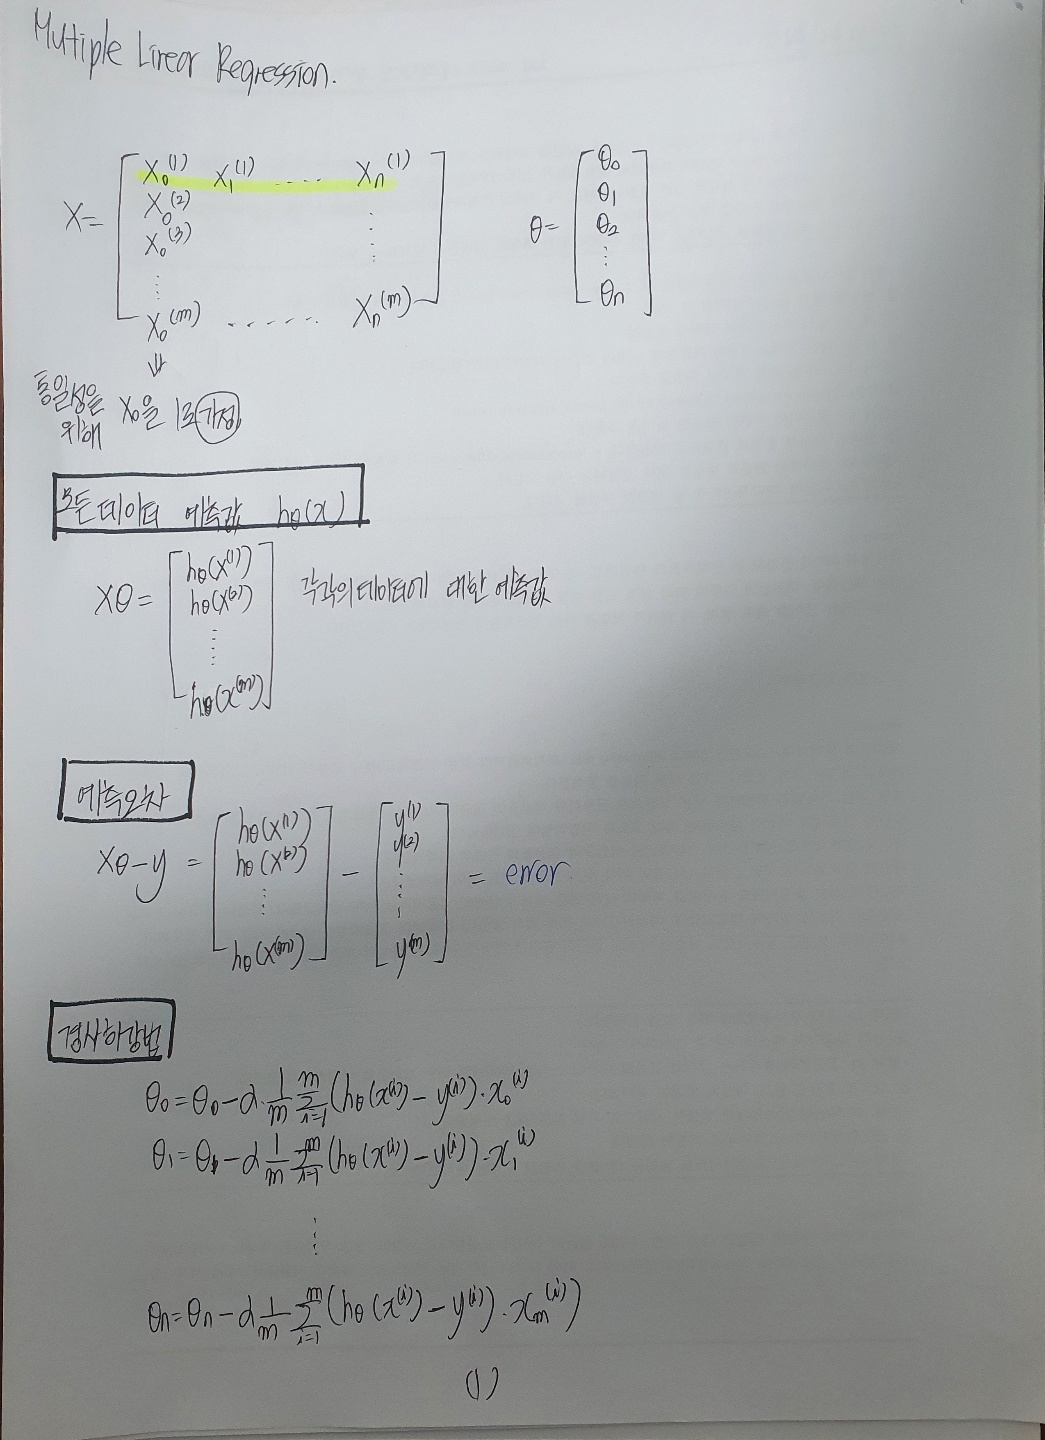 Mutiple Linear Regression.
X = [ X₀⁽¹⁾ X₁⁽¹⁾ ..... Xₙ⁽¹⁾
X₀⁽²⁾
X₀⁽³⁾
X₀⁽ᵐ⁾ ...... Xₙ⁽ᵐ⁾ ]
θ = [ θ₀
θ₁
θ₂
⋮
θₙ ]
⇓
통일성을
위해 X₀을 1로 가정
모든 데이터 예측값 hθ(x)
Xθ = [ hθ(x⁽¹⁾)
hθ(x⁽²⁾)
⋮
hθ(x⁽ᵐ⁾) ] 각각의 데이터에 대한 예측값
예측오차
Xθ-y = [ hθ(x⁽¹⁾)
hθ(x⁽²⁾)
⋮
hθ(x⁽ᵐ⁾) ] - [ y⁽¹⁾
y⁽²⁾
⋮
y⁽ᵐ⁾ ] = error
경사하강법
θ₀=θ₀-α·1/m Σᵢ₌₁ᵐ (hθ(x⁽ⁱ⁾)-y⁽ⁱ⁾)·x₀⁽ⁱ⁾
θ₁=θ₁-α 1/m Σᵢ₌₁ᵐ (hθ(x⁽ⁱ⁾)-y⁽ⁱ⁾)·x₁⁽ⁱ⁾
⋮
θₙ=θₙ-α 1/m Σᵢ₌₁ᵐ (hθ(x⁽ⁱ⁾)-y⁽ⁱ⁾)·xₘ⁽ⁱ⁾)
(1)